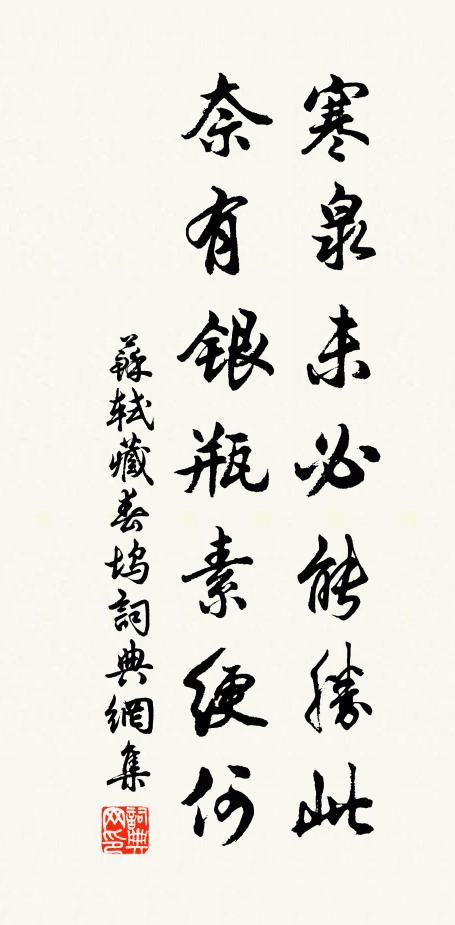 寒泉未必能勝此
奈有銀瓶素綆何
蘇軾藏春塢詞典網集
詞典网印